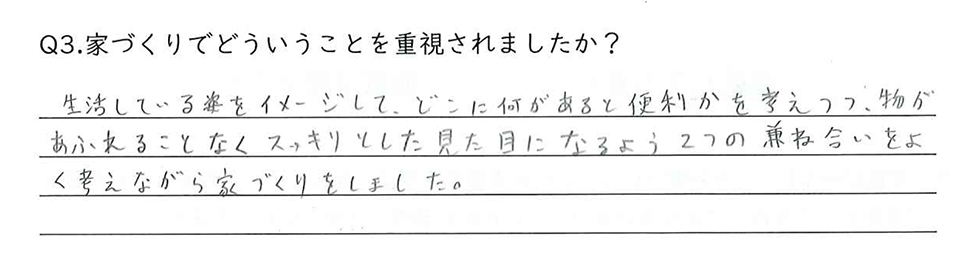 Q3.家づくりでどういうことを重視されましたか？
生活している姿をイメージして、どこに何があると便利かを考えつつ、物が
あふれることなくスッキリとした見た目になるよう2つの兼ね合いをよ
く考えながら家づくりをしました。